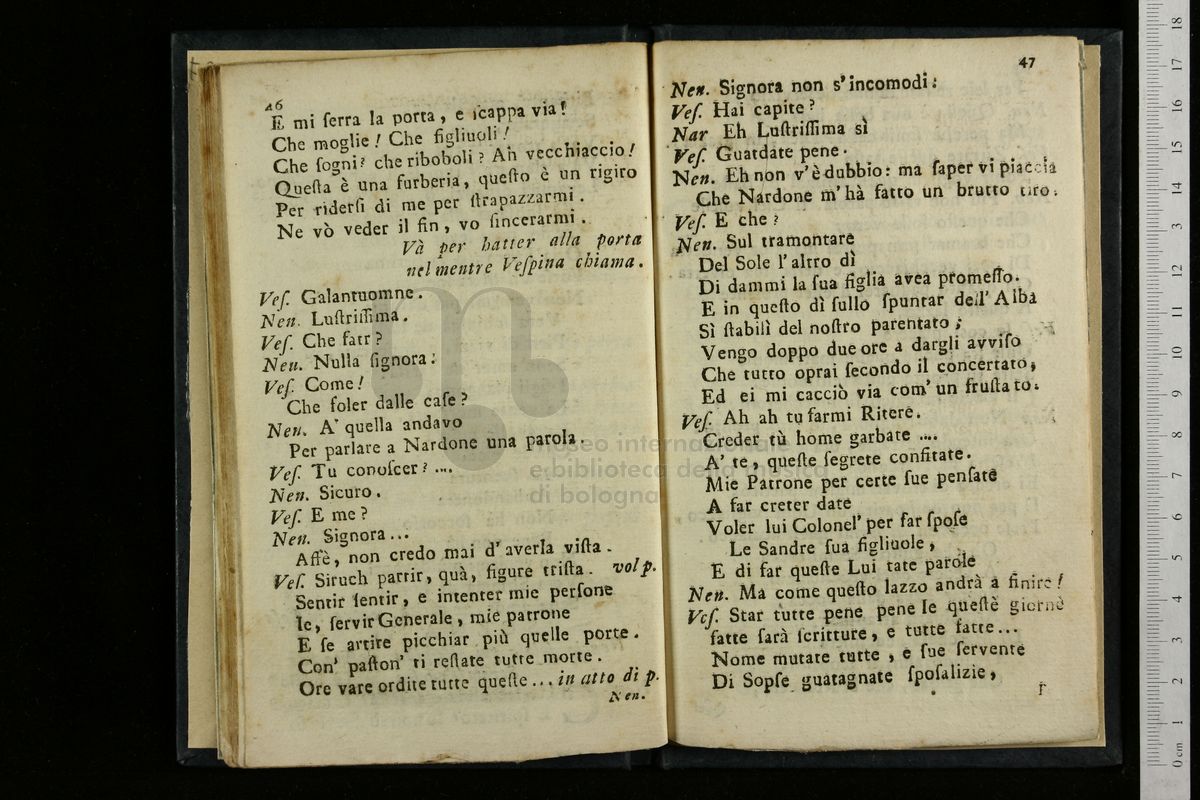 46
E mi ſerra la porta, e ſcappa via!
Che moglie! Che figliuoli!
Che ſogni? che riboboli? Ah vecchiaccio!
Queſta è una furberia, queſto è un rigiro
Per riderſi di me per ſtrapazzarmi.
Ne vò veder il fin, vo ſincerarmi.
Và per batter alla porta
nel mentre Veſpina chiama.
Veſ. Galantuomne.
Nen. Luſtriſſima.
Veſ. Che fatr?
Nen. Nulla ſignora:
Veſ. Come!
Che foler dalle caſe?
Nen. A' quella andavo
Per parlare a Nardone una parola.
Veſ. Tu conoſcer? ....
Nen. Sicuro.
Veſ. E me?
Nen. Signora...
Affè, non credo mai d'averla viſta.
Veſ. Siruch partir, quà, figure triſta. vol p.
Sentir ſentir, e intenter mie perſone
Ie, ſervir Generale, mie patrone
E ſe artire picchiar più quelle porte.
Con' paſton' ti reſtate tutte morte.
Ore vare ordite tutte queſte... in atto di p.
Nen.
47
Nen. Signora non s'incomodi:
Veſ. Hai capite?
Nar Eh Luſtriſſima sì
Veſ. Guatdate pene.
Nen. Eh non v'è dubbio: ma ſaper vi piaccia
Che Nardone m'hà fatto un brutto tiro.
Veſ. E che?
Nen. Sul tramontare
Del Sole l'altro dì
Di dammi la ſua figlia avea promeſſo.
E in queſto dì ſullo ſpuntar dell'Alba
Sì ſtabilì del noſtro parentato;
Vengo doppo due ore a dargli avviſo
Che tutto oprai ſecondo il concertato,
Ed ei mi cacciò via com' un fruſtato.
Veſ. Ah ah tu farmi Ritere.
Creder tù home garbate ....
A' te, queſte ſegrete confitate.
Mie Patrone per certe ſue penſate
A far creter date
Voler lui Colonel' per far ſpoſe
Le Sandre ſua figliuole,
E di far queſte Lui tate parole
Nen. Ma come queſto lazzo andrà a finire!
Veſ. Star tutte pene pene Ie queſtè giornè
fatte farà ſcritture, e tutte fatte...
Nome mutate tutte, e ſue ſervente
Di Sopſe guatagnate ſpoſalizie,
museo internazionale
e biblioteca della musica
di bologna
0 cm. 1 2 3 4 5 6 7 8 9 10 11 12 13 14 15 16 17 18